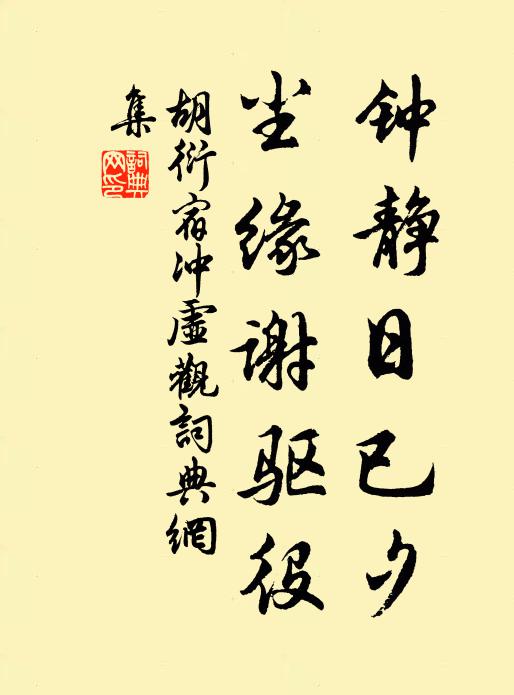 钟静日已夕
尘缘谢驱役
胡衍宿冲虚觀詞典網
集
詞典
网印